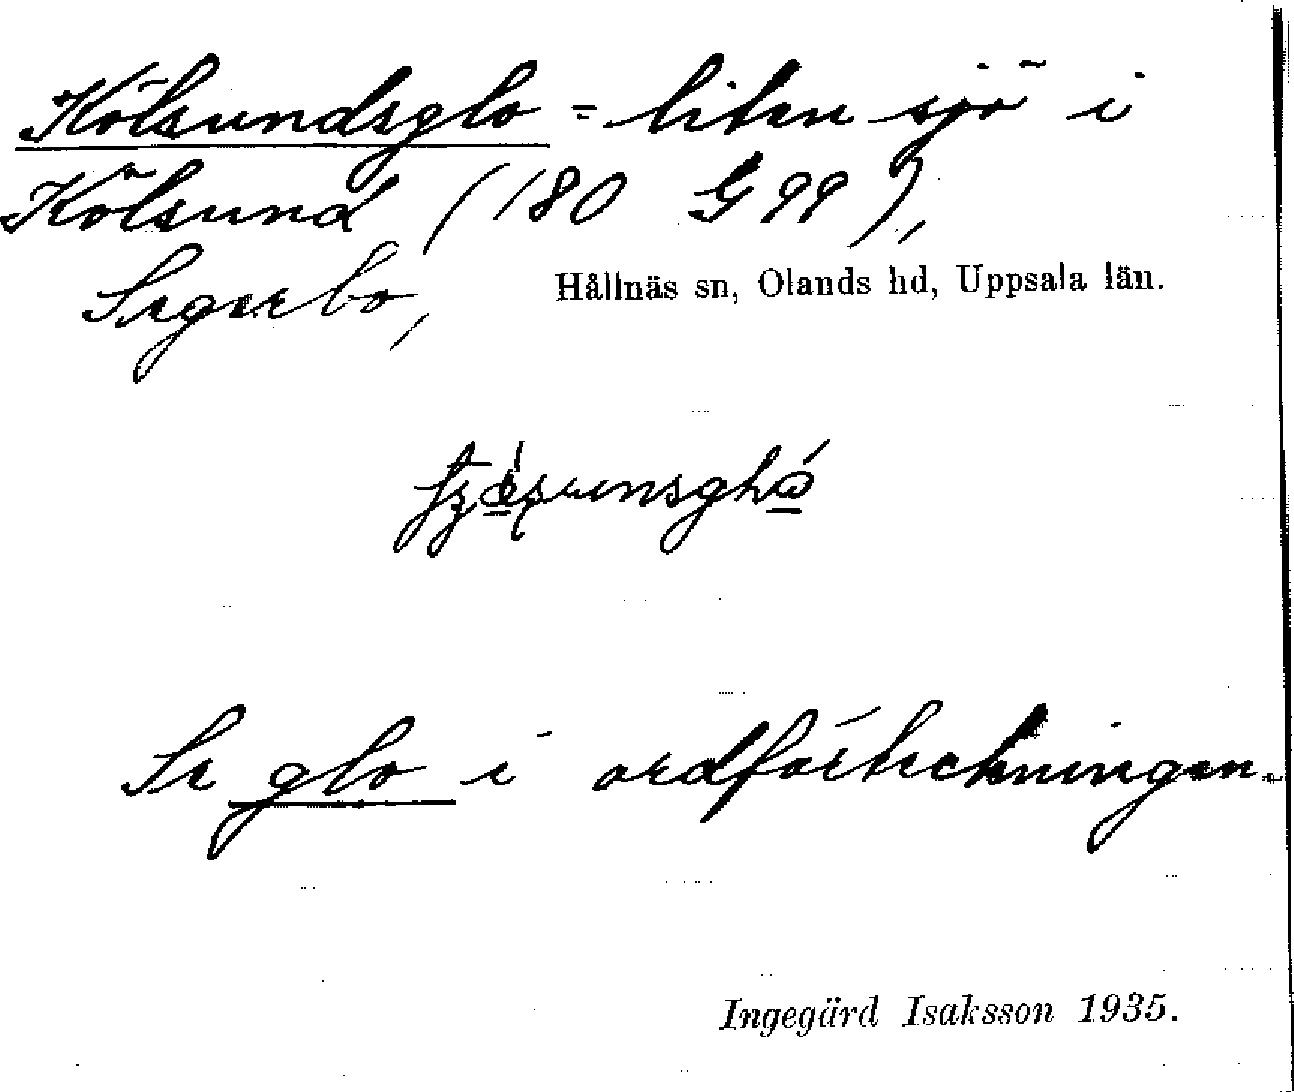 Kölsundsglo = liten sjö i
Kölsund (180 G 99),
Segerbo, Hållnäs sn, Olands hd, Uppsala län.
Se glo i ordförteckningen.
Ingegärd Isaksson 1935.